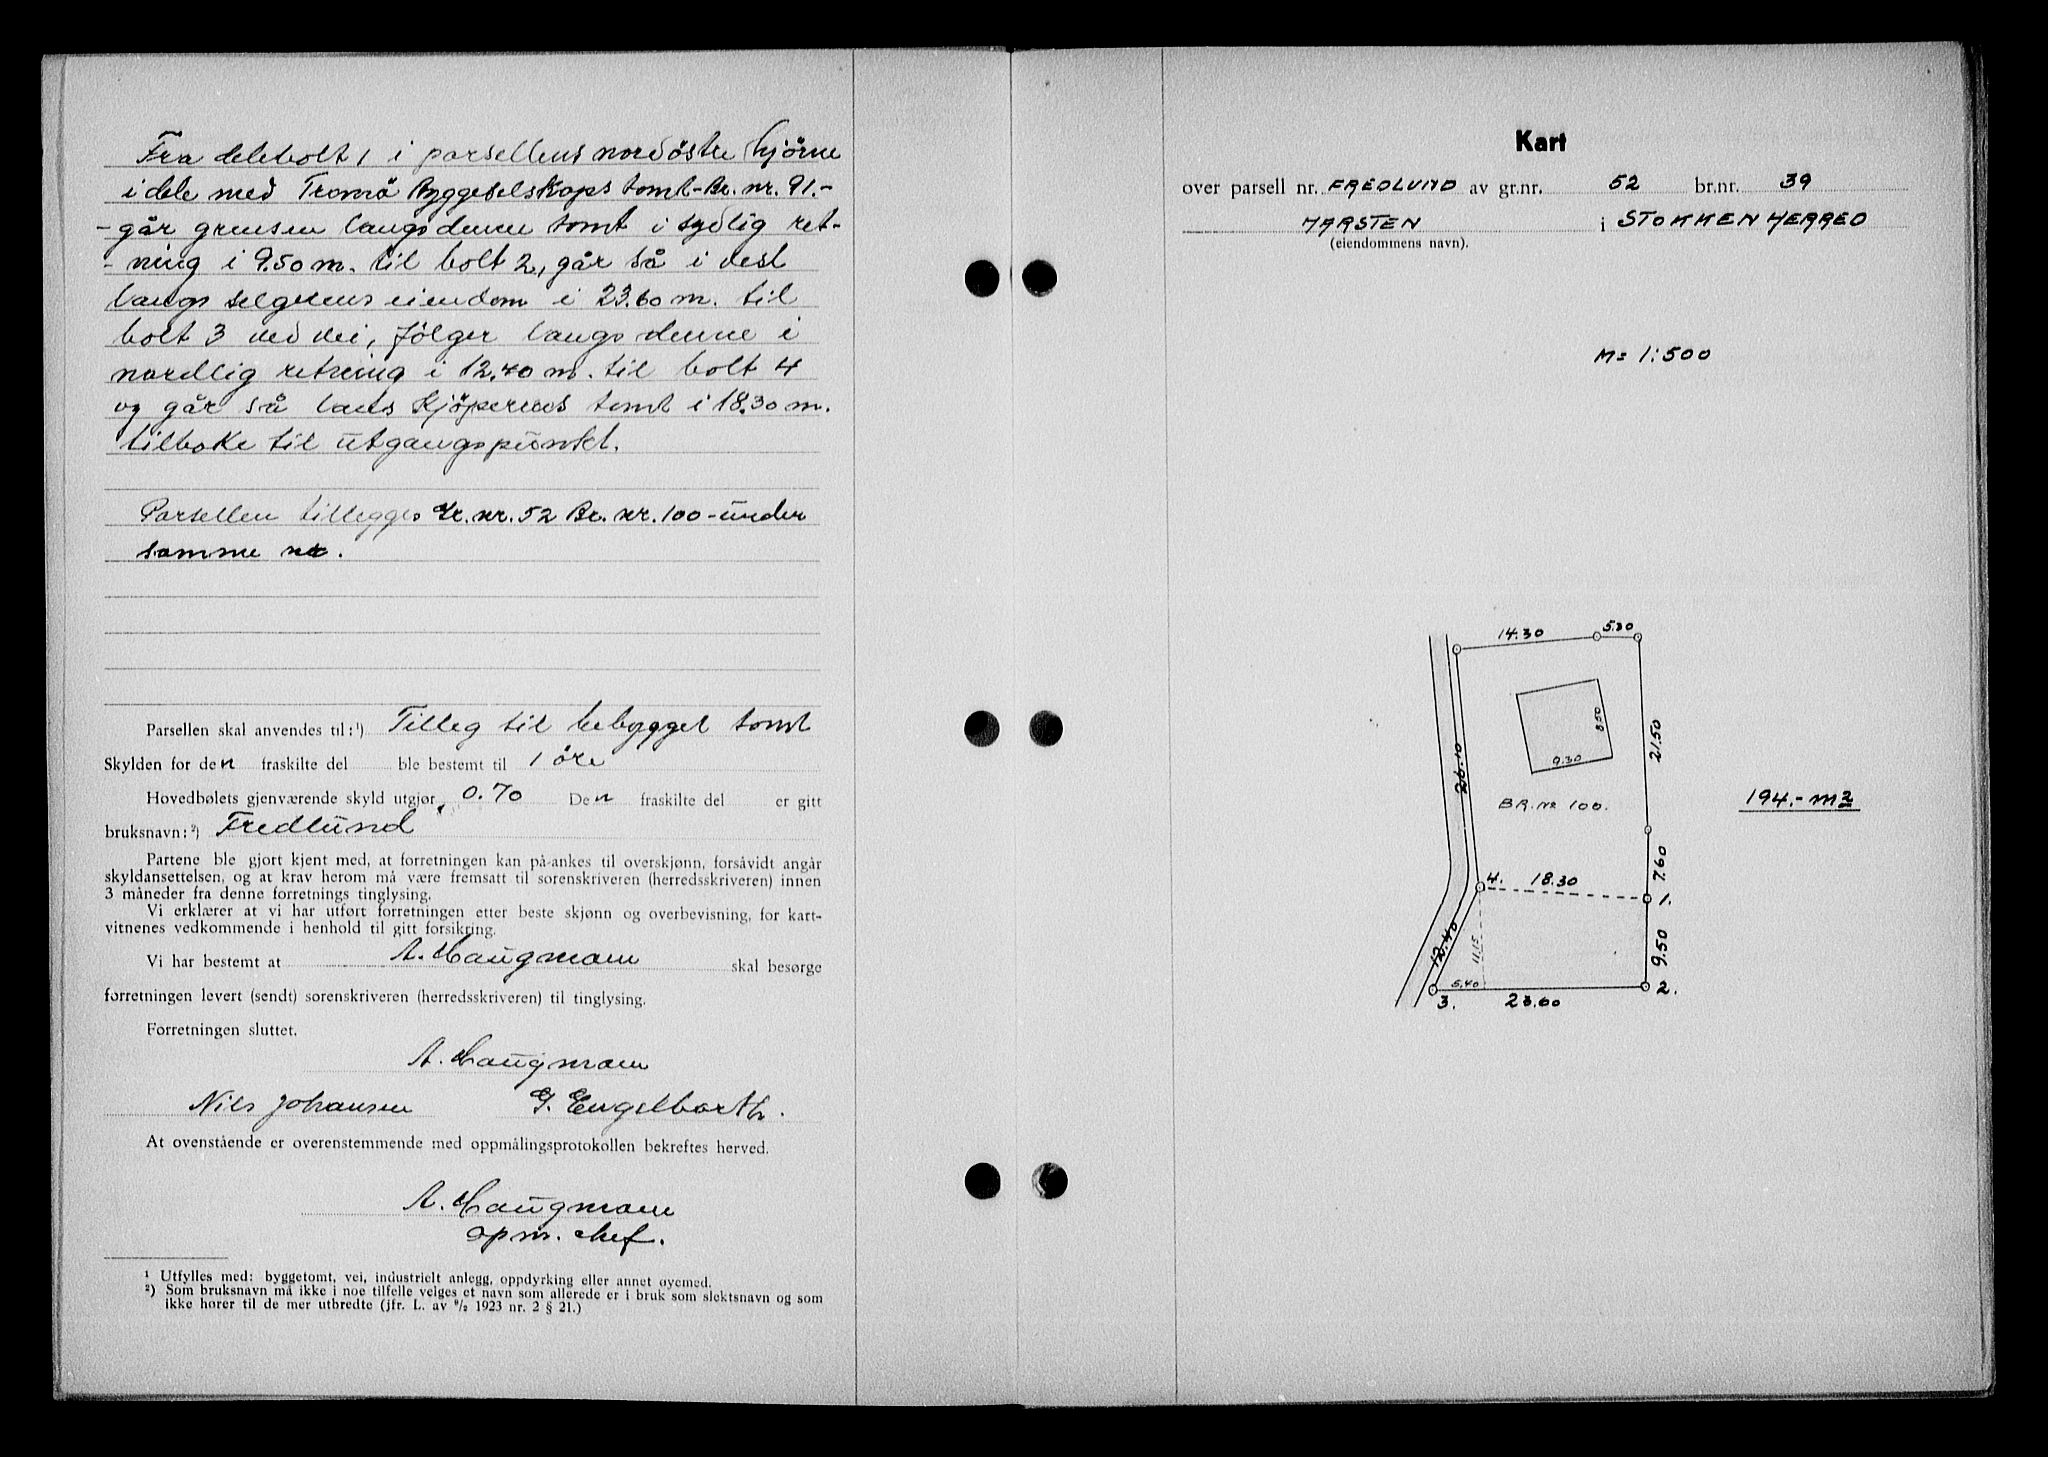 Fra delebolt 1 i parsellens nordöstre hjörne
i dele med Tromö Byggeselskaps tomt-Br. nr. 91.-
- går grensen langs denne tomt i sydlig ret-
- ning i 9.50 m. til bolt 2, går så i vest
langs selgerens eiendom i 23.60 m. til
bolt 3 ved vei, følger langs denne i
nordlig retning i 12.40 m. til bolt 4
og går så langs Kjöperens tomt i 18.30 m.
tilbake til utgangspunkt.
Parsellen tillegges Gr. nr. 52 Br. nr. 100 - under
samme nr.
Parsellen skal anvendes til: ¹) Tilleg til bebygget tomt
Skylden for den fraskilte del ble bestemt til 1 öre
Hovedbølets gjenværende skyld utgjør 0.70 Den fraskilte del er gitt
bruksnavn: ²) Fredlund
Partene ble gjort kjent med, at forretningen kan på-ankes til overskjønn, forsåvidt angår
skyldansettelsen, og at krav herom må være fremsatt til sorenskriveren (herredsskriveren) innen
3 måneder fra denne forretnings tinglysing.
Vi erklærer at vi har utført forretningen etter beste skjønn og overbevisning, for kart-
vitnenes vedkommende i henhold til gitt forsikring.
Vi har bestemt at A. Haugmoen skal besørge
forretningen levert (sendt) sorenskriveren (herredsskriveren) til tinglysing.
Forretningen sluttet.
A. Haugmoen
Nils Johansen G. Engelbarth.
At ovenstående er overenstemmende med oppmålingsprotokollen bekreftes herved.
A. Haugmoen
opm. chef.
¹ Utfylles med: byggetomt, vei, industrielt anlegg, oppdyrking eller annet øyemed.
²) Som bruksnavn må ikke i noe tilfelle velges et navn som allerede er i bruk som slektsnavn og som
ikke hører til de mer utbredte (jfr. L. av ⁹/₂ 1923 nr. 2 § 21.)
Kart
over parsell nr. FREDLUND av gr.nr. 52 br.nr. 39
HARSTEN i STOKKEN HERRED
(eiendommens navn).
M= 1:500
14.30 5.30
8.50
21.50
26.10
9.30
BR. NR 100.
194.- m2
7.60
4. 18.30
1.
12.40
11.15
9.50
5.40
3. 23.60 2.